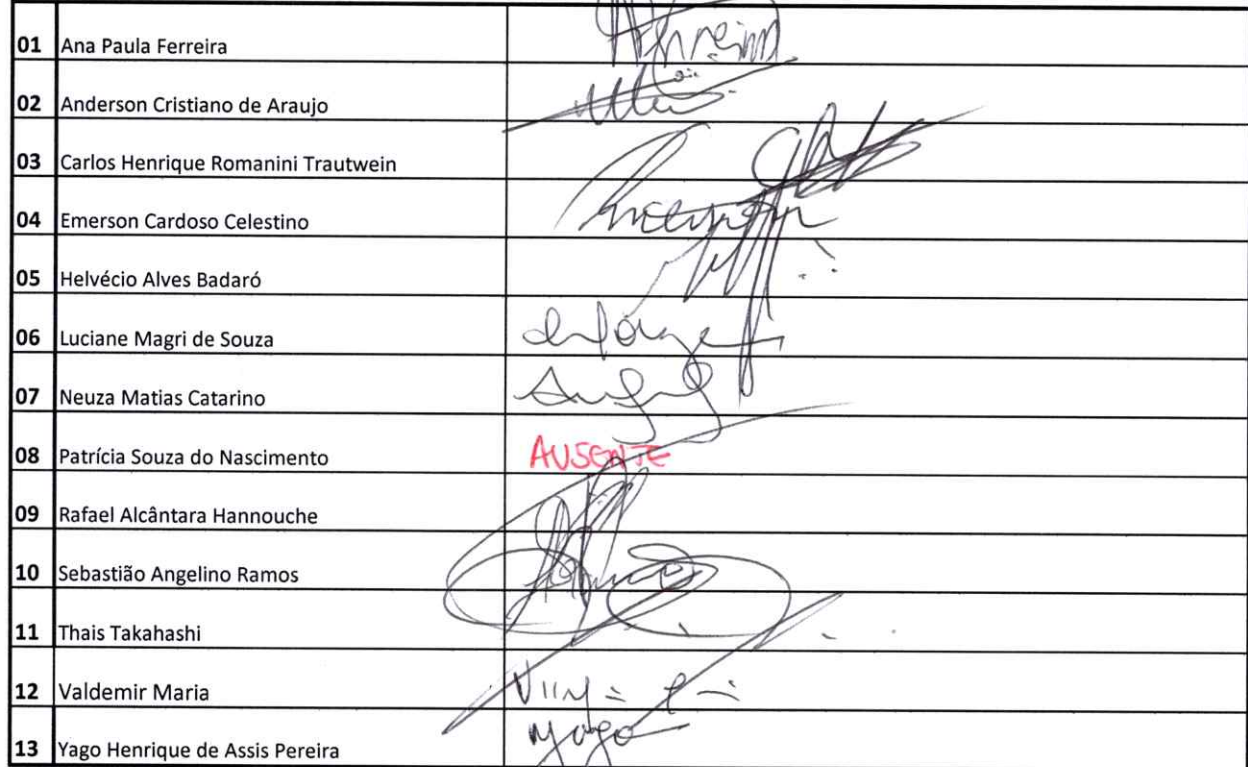 01 Ana Paula Ferreira
02 Anderson Cristiano de Araujo
03 Carlos Henrique Romanini Trautwein
04 Emerson Cardoso Celestino
05 Helvécio Alves Badaró
06 Luciane Magri de Souza
07 Neuza Matias Catarino
08 Patrícia Souza do Nascimento AUSENTE
09 Rafael Alcântara Hannouche
10 Sebastião Angelino Ramos
11 Thais Takahashi
12 Valdemir Maria
13 Yago Henrique de Assis Pereira Yago